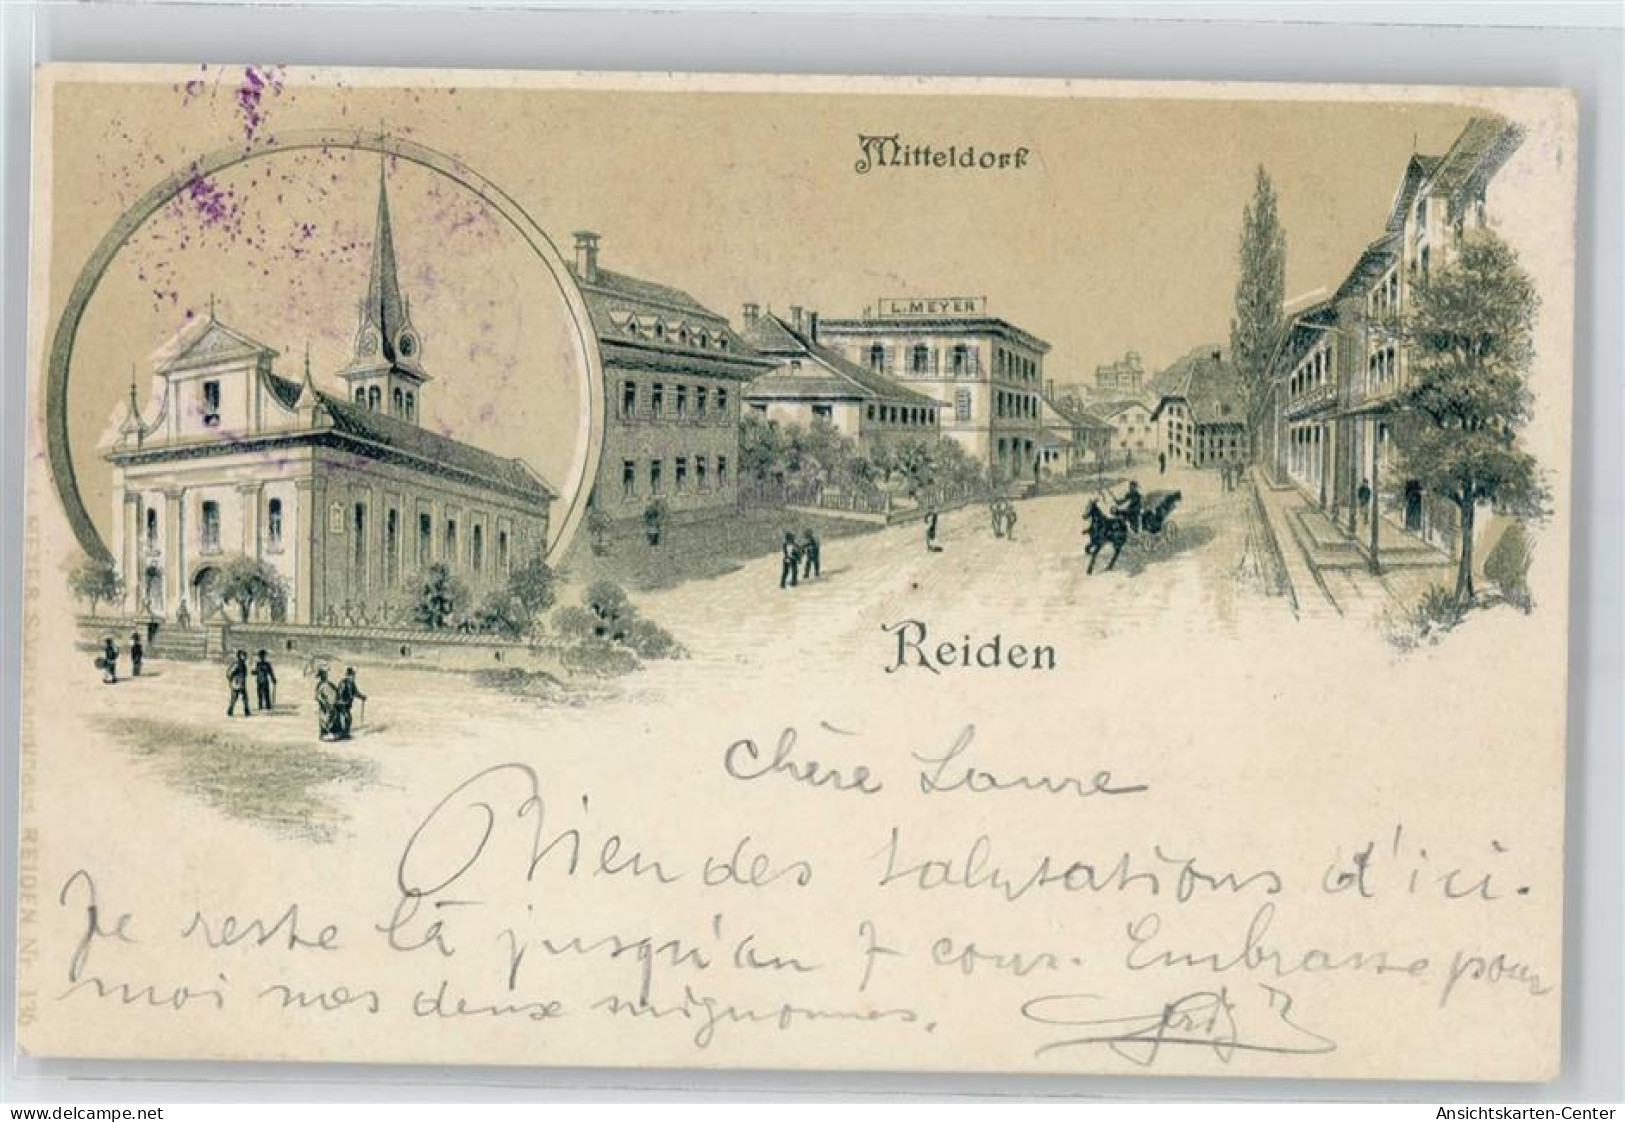 Mitteldorf
L. MEYER
Reiden
chère Laure
Bien des salutations d'ici.
Je reste là jusqu'au 7 cour. Embrasse pour
moi mes deux mignonnes.
REIDEN Nr. 136
www.delcampe.net
Ansichtskarten-Center